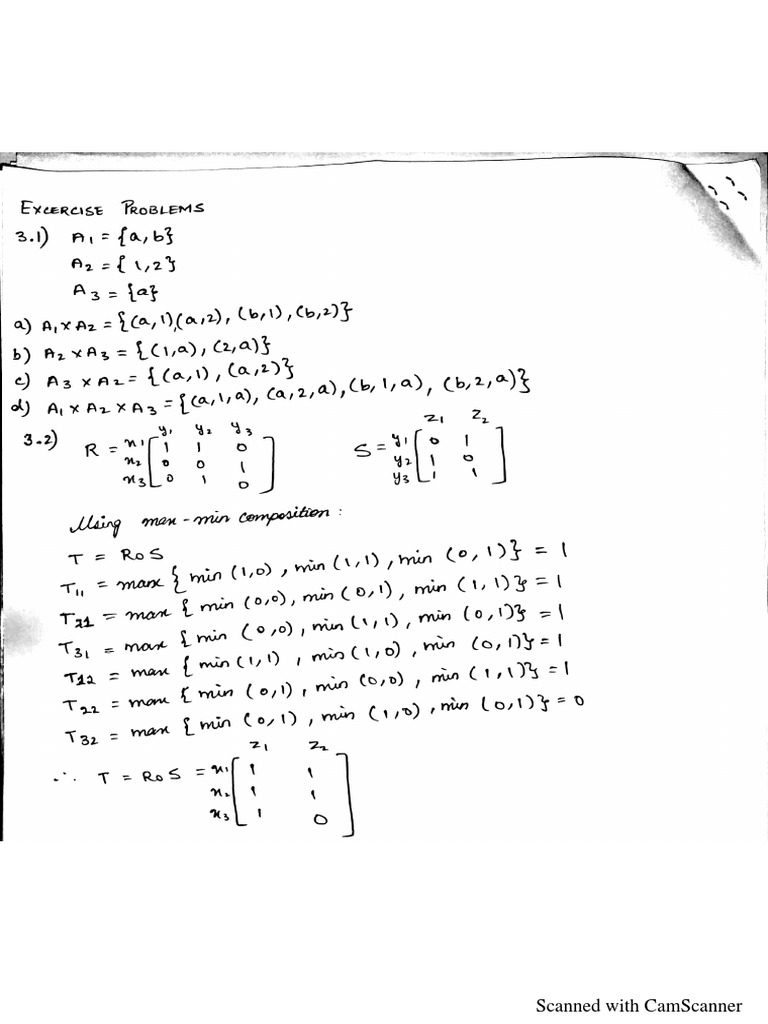 EXCERCISE PROBLEMS
3.1) A1 = {a,b}
A2 = {1,2}
A3 = {a}
a) A1 x A2 = {(a,1)(a,2), (b,1), (b,2)}
b) A2 x A3 = {(1,a), (2,a)}
c) A3 x A2 = {(a,1), (a,2)}
d) A1 x A2 x A3 = {(a,1,a), (a,2,a), (b,1,a), (b,2,a)}
3.2)
y1 y2 y3
R = x1 [ 1 1 0 ]
x2 [ 0 0 1 ]
x3 [ 0 1 0 ]
z1 z2
S = y1 [ 0 1 ]
y2 [ 1 0 ]
y3 [ 1 1 ]
Using max-min composition:
T = RoS
T11 = max { min (1,0), min (1,1), min (0,1)} = 1
T21 = max { min (0,0), min (0,1), min (1,1)} = 1
T31 = max { min (0,0), min (1,1), min (0,1)} = 1
T12 = max { min (1,1), min (1,0), min (0,1)} = 1
T22 = max { min (0,1), min (0,0), min (1,1)} = 1
T32 = max { min (0,1), min (1,0), min (0,1)} = 0
z1 z2
∴ T = RoS = x1 [ 1 1 ]
x2 [ 1 1 ]
x3 [ 1 0 ]
Scanned with CamScanner